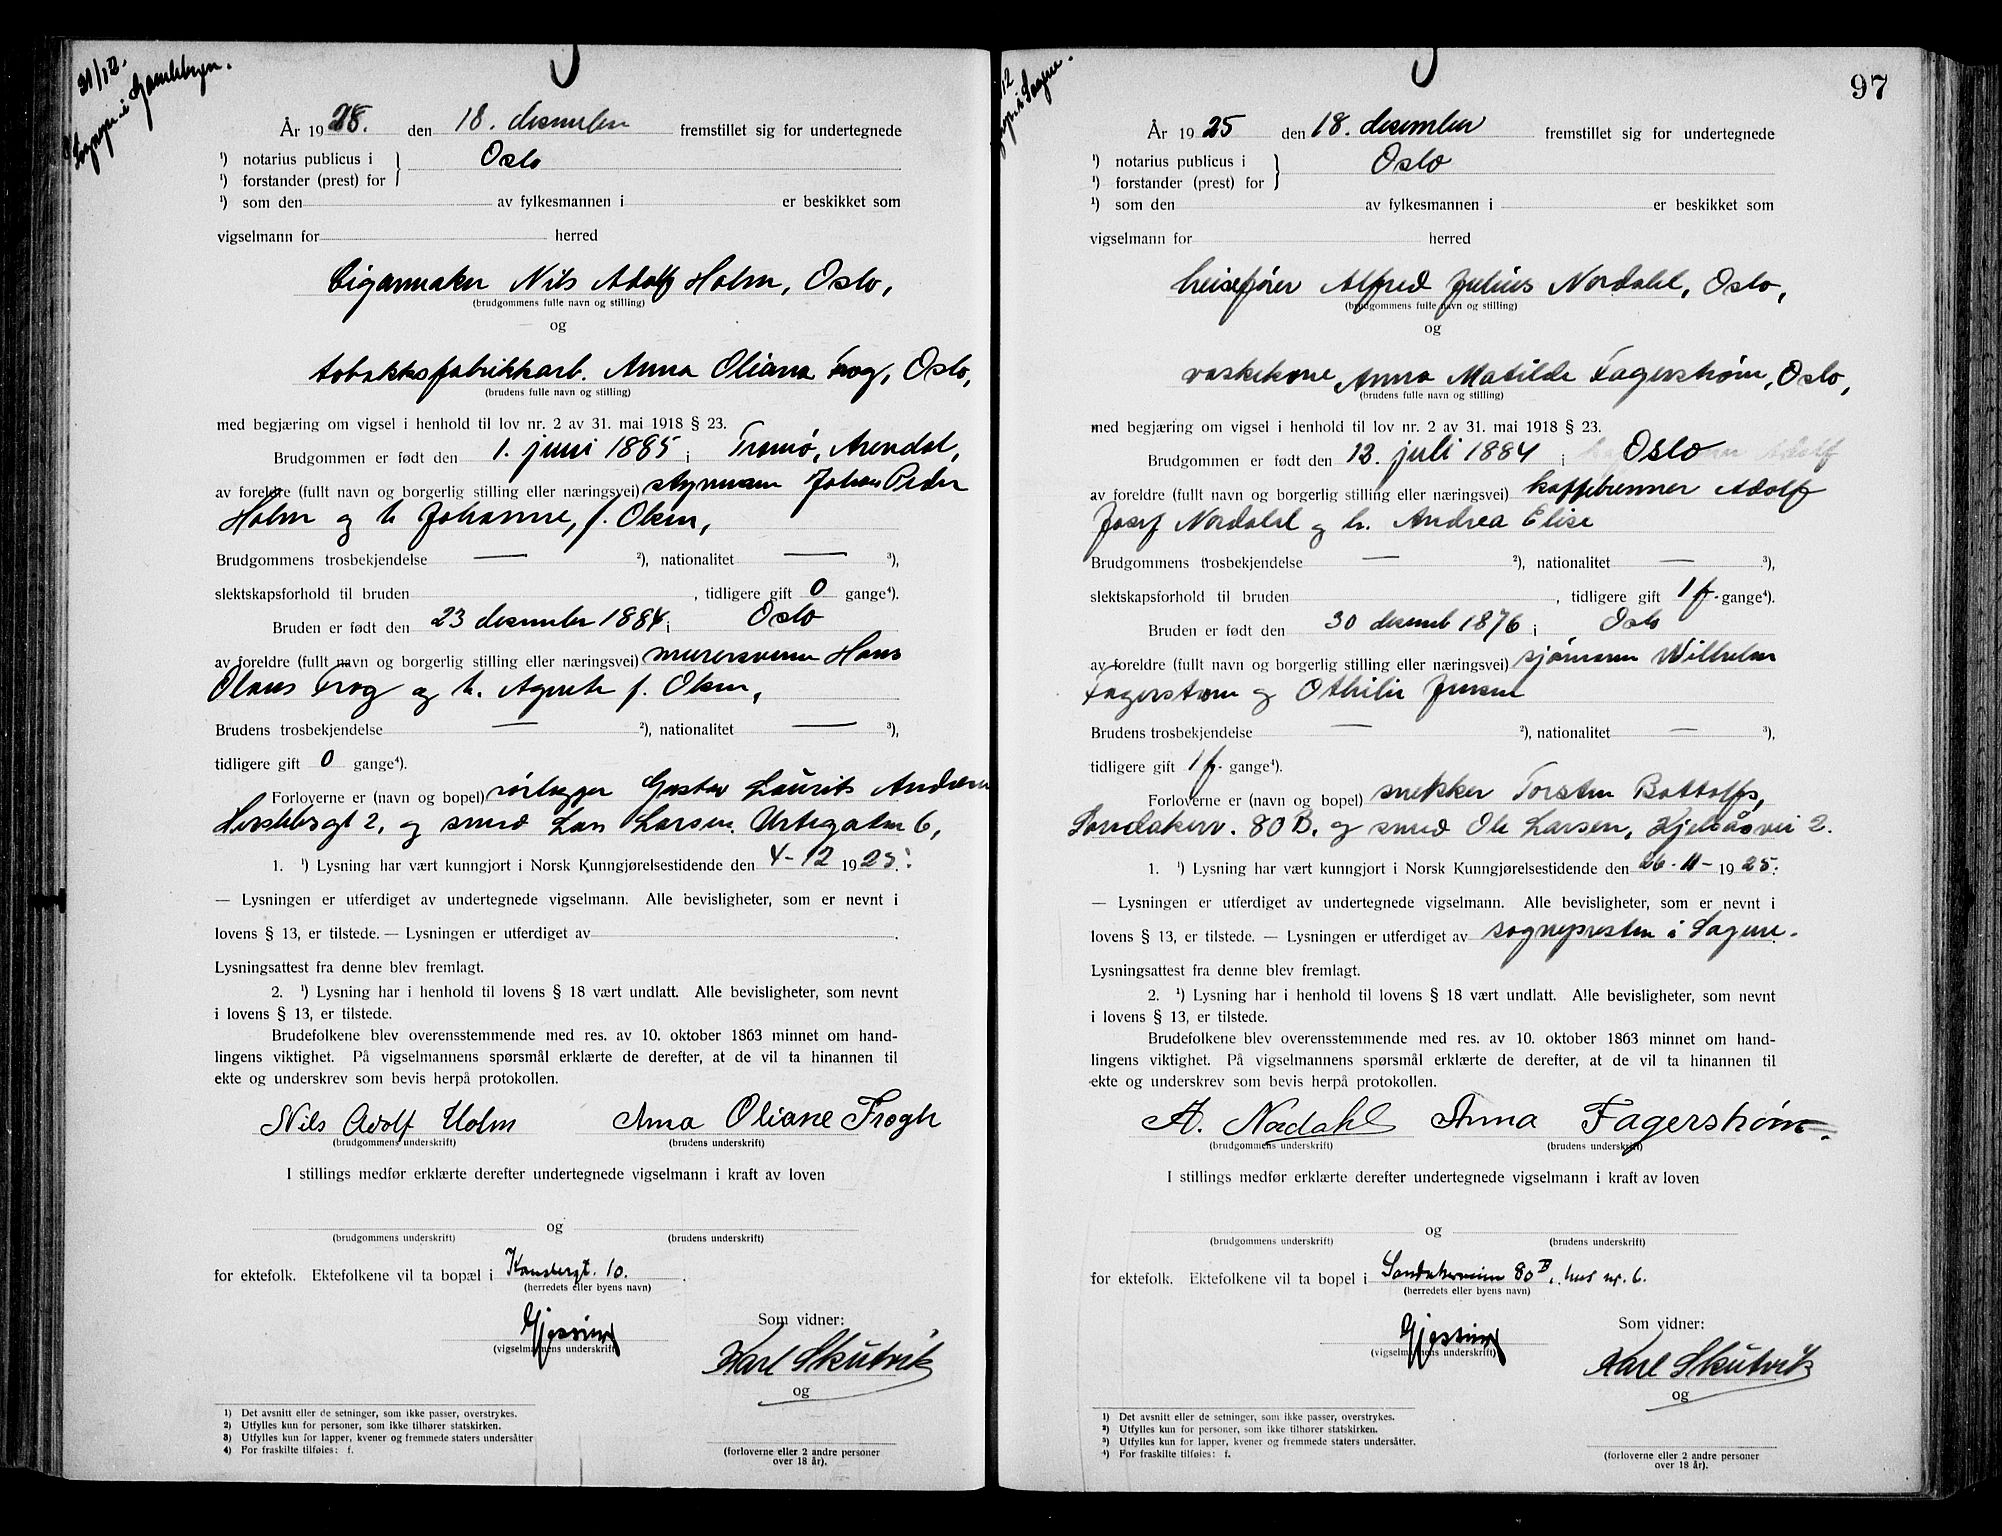 21/12.
Sognepr. i Gamlebyen.
År 1928. den 18. desember fremstillet sig for undertegnede
¹) notarius publicus i } Oslo
¹) forstander (prest) for
¹) som den av fylkesmannen i er beskikket som
vigselmann for herred
Cigarmaker Nils Adolf Holm, Oslo,
(brudgommens fulle navn og stilling)
og
tobakksfabrikkarb. Anna Oliana Frog, Oslo,
(brudens fulle navn og stilling)
med begjæring om vigsel i henhold til lov nr. 2 av 31. mai 1918 § 23.
Brudgommen er født den 1. juni 1885 i Tromø, Arendal,
av foreldre (fullt navn og borgerlig stilling eller næringsvei) styrmann Johan Peder
Holm og h. Johanne, f. Olsen,
Brudgommens trosbekjendelse — ²), nationalitet — ³),
slektskapsforhold til bruden , tidligere gift 0 gange⁴).
Bruden er født den 23 desember 1884 i Oslo
av foreldre (fullt navn og borgerlig stilling eller næringsvei) murersvenn Hans
Olaus Frog og h. Agnete f. Olsen,
Brudens trosbekjendelse — ²), nationalitet — ³),
tidligere gift 0 gange⁴).
Forloverne er (navn og bopel) rørlegger Gustav Laurits Andersen
Herslebsgt 2, og smed Lars Larsen, Urtegaten 6,
1. ¹) Lysning har vært kunngjort i Norsk Kunngjørelsestidende den 4-12 1925.
— Lysningen er utferdiget av undertegnede vigselmann. Alle bevisligheter, som er nevnt i
lovens § 13, er tilstede. — Lysningen er utferdiget av .
Lysningsattest fra denne blev fremlagt.
2. ¹) Lysning har i henhold til lovens § 18 vært undlatt. Alle bevisligheter, som nevnt
i lovens § 13, er tilstede.
Brudefolkene blev overensstemmende med res. av 10. oktober 1863 minnet om hand-
lingens viktighet. På vigselmannens spørsmål erklærte de derefter, at de vil ta hinannen til
ekte og underskrev som bevis herpå protokollen.
Nils Adolf Holm Anna Oliane Frogh
(brudgommens underskrift) (brudens underskrift)
I stillings medfør erklærte derefter undertegnede vigselmann i kraft av loven
og
(brudgommens underskrift) (brudens underskrift)
for ektefolk. Ektefolkene vil ta bopæl i 10.
(herredets eller byens navn)
Gjessing
(vigselmannens underskrift)
Som vidner:
Karl Skutvik
og
¹) Det avsnitt eller de setninger, som ikke passer, overstrykes.
²) Utfylles kun for personer, som ikke tilhører statskirken.
³) Utfylles kun for lapper, kvener og fremmede staters undersåtter
⁴) For fraskilte tilføies: f.
(forloverne eller 2 andre personer
over 18 år).
97
12
i Sagene.
År 1925 den 18. desember fremstillet sig for undertegnede
¹) notarius publicus i } Oslo
¹) forstander (prest) for
¹) som den av fylkesmannen i er beskikket som
vigselmann for herred
heisefører Alfred Julius Nordahl, Oslo,
(brudgommens fulle navn og stilling)
og
vaskekone Anna Matilde Fagerstrøm, Oslo,
(brudens fulle navn og stilling)
med begjæring om vigsel i henhold til lov nr. 2 av 31. mai 1918 § 23.
Brudgommen er født den 12. juli 1884 i Oslo
av foreldre (fullt navn og borgerlig stilling eller næringsvei) kaffebrenner Adolf
Josef Nordahl og h. Andrea Elise
Brudgommens trosbekjendelse — ²), nationalitet — ³),
slektskapsforhold til bruden , tidligere gift 1 f. gange⁴).
Bruden er født den 30 desemb 1876 i Oslo
av foreldre (fullt navn og borgerlig stilling eller næringsvei) sjømann Wilhelm
Fagerstrøm og Othilie Jensen
Brudens trosbekjendelse — ²), nationalitet — ³),
tidligere gift 1 f. gange⁴).
Forloverne er (navn og bopel) snekker Torsten Bottolfs,
Sandakerv. 80 B, og smed Ole Larsen, Kjelsåsvei 2.
1. ¹) Lysning har vært kunngjort i Norsk Kunngjørelsestidende den 26-11-1925.
— Lysningen er utferdiget av undertegnede vigselmann. Alle bevisligheter, som er nevnt i
lovens § 13, er tilstede. — Lysningen er utferdiget av sognepresten i Sagene.
Lysningsattest fra denne blev fremlagt.
2. ¹) Lysning har i henhold til lovens § 18 vært undlatt. Alle bevisligheter, som nevnt
i lovens § 13, er tilstede.
Brudefolkene blev overensstemmende med res. av 10. oktober 1863 minnet om hand-
lingens viktighet. På vigselmannens spørsmål erklærte de derefter, at de vil ta hinannen til
ekte og underskrev som bevis herpå protokollen.
A. Nordahl Anna Fagerstrøm.
(brudgommens underskrift) (brudens underskrift)
I stillings medfør erklærte derefter undertegnede vigselmann i kraft av loven
og
(brudgommens underskrift) (brudens underskrift)
for ektefolk. Ektefolkene vil ta bopel i Sandakerveien 80 B, hus nr. 6.
(herredets eller byens navn)
Gjessing
(vigselmannens underskrift)
Som vidner:
Karl Skutvik
og
¹) Det avsnitt eller de setninger, som ikke passer, overstrykes.
²) Utfylles kun for personer, som ikke tilhører statskirken.
³) Utfylles kun for lapper, kvener og fremmede staters undersåtter.
⁴) For fraskilte tilføies: f.
(forloverne eller 2 andre personer
over 18 år).